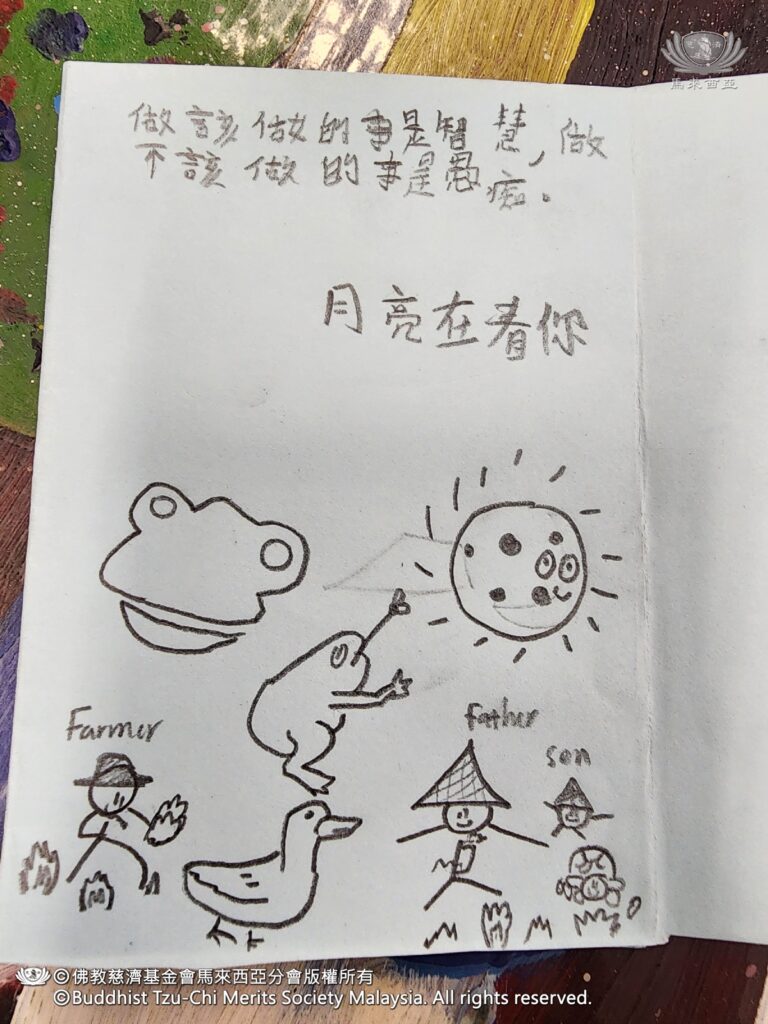 馬來西亞
做該做的事是智慧,做
不該做的事是愚痴。
月亮在看你
Farmer
Father
son
©佛教慈濟基金會馬來西亞分會版權所有
©Buddhist Tzu-Chi Merits Society Malaysia. All rights reserved.